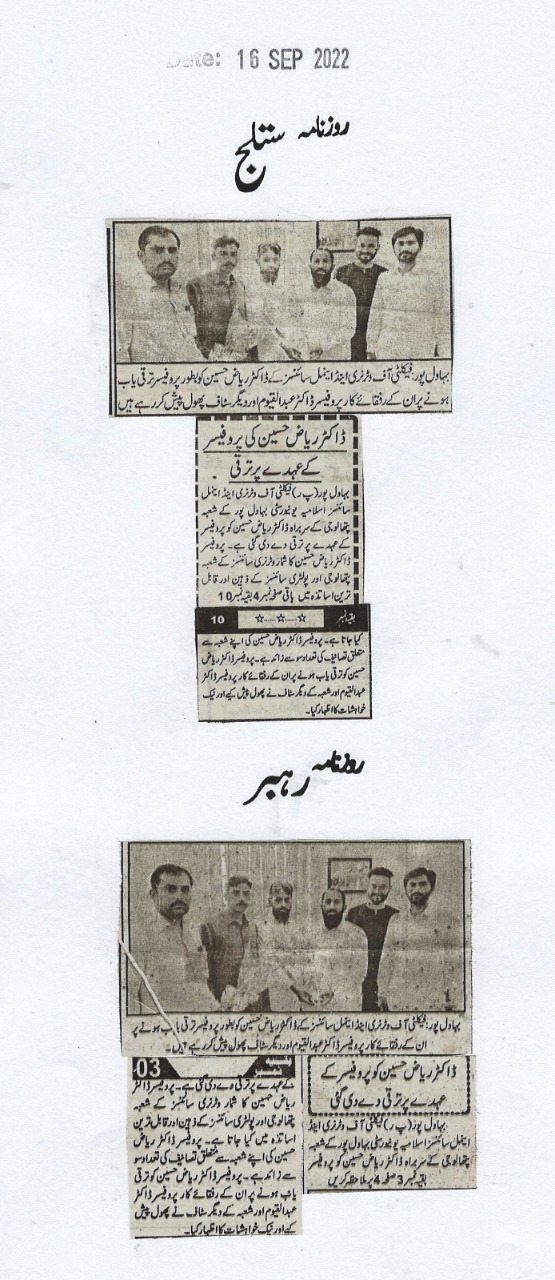 Date: 16 SEP 2022
روزنامہ ستلج
بہاول پور: فیکلٹی آف وٹرنری اینڈ اینمل سائنسز کے ڈاکٹر ریاض حسین کو بطور پروفیسر ترقی یاب
ہونے پر ان کے رفقائے کار پروفیسر ڈاکٹر عبدالقیوم اور دیگر سٹاف پھول پیش کر رہے ہیں
ڈاکٹر ریاض حسین کی پروفیسر
کے عہدے پر ترقی
بہاول پور (پ ر) فیکلٹی آف وٹرنری اینڈ اینمل
سائنسز اسلامیہ یونیورسٹی بہاول پور کے شعبہ
پتھالوجی کے سربراہ ڈاکٹر ریاض حسین کو پروفیسر
کے عہدے پر ترقی دے دی گئی ہے۔ پروفیسر
ڈاکٹر ریاض حسین کا شمار وٹرنری سائنسز کے شعبہ
پتھالوجی اور پولٹری سائنسز کے ذہین اور قابل
ترین اساتذہ میں باقی صفحہ نمبر 4 بقیہ نمبر 10
بقیہ نمبر ☆----☆----☆ 10
کیا جاتا ہے۔ پروفیسر ڈاکٹر ریاض حسین کی اپنے شعبہ سے
متعلق تصانیف کی تعداد سو سے زائد ہے۔ پروفیسر ڈاکٹر ریاض
حسین کو ترقی یاب ہونے پر ان کے رفقائے کار پروفیسر ڈاکٹر
عبدالقیوم اور شعبہ کے دیگر سٹاف نے پھول پیش کیے اور نیک
خواہشات کا اظہار کیا۔
روزنامہ رہبر
بہاول پور: فیکلٹی آف وٹرنری اینڈ اینمل سائنسز کے ڈاکٹر ریاض حسین کو بطور پروفیسر ترقی یاب ہونے پر
ان کے رفقائے کار پروفیسر ڈاکٹر عبدالقیوم اور دیگر سٹاف پھول پیش کر رہے ہیں۔
ڈاکٹر ریاض حسین کو پروفیسر کے
عہدے پر ترقی دے دی گئی
بہاول پور (پ ر) فیکلٹی آف وٹرنری اینڈ
اینمل سائنسز اسلامیہ یونیورسٹی بہاول پور کے شعبہ
پتھالوجی کے سربراہ ڈاکٹر ریاض حسین کو پروفیسر
بقیہ نمبر 3 صفحہ 4 پر ملاحظہ کریں
بقیہ نمبر 03
کے عہدے پر ترقی دے دی گئی ہے۔ پروفیسر ڈاکٹر
ریاض حسین کا شمار وٹرنری سائنسز کے شعبہ
پتھالوجی اور پولٹری سائنسز کے ذہین اور قابل ترین
اساتذہ میں کیا جاتا ہے۔ پروفیسر ڈاکٹر ریاض
حسین کی اپنے شعبہ سے متعلق تصانیف کی تعداد سو
سے زائد ہے۔ پروفیسر ڈاکٹر ریاض حسین کو ترقی
یاب ہونے پر ان کے رفقائے کار پروفیسر ڈاکٹر
عبدالقیوم اور شعبہ کے دیگر سٹاف نے پھول پیش
کیے اور نیک خواہشات کا اظہار کیا۔